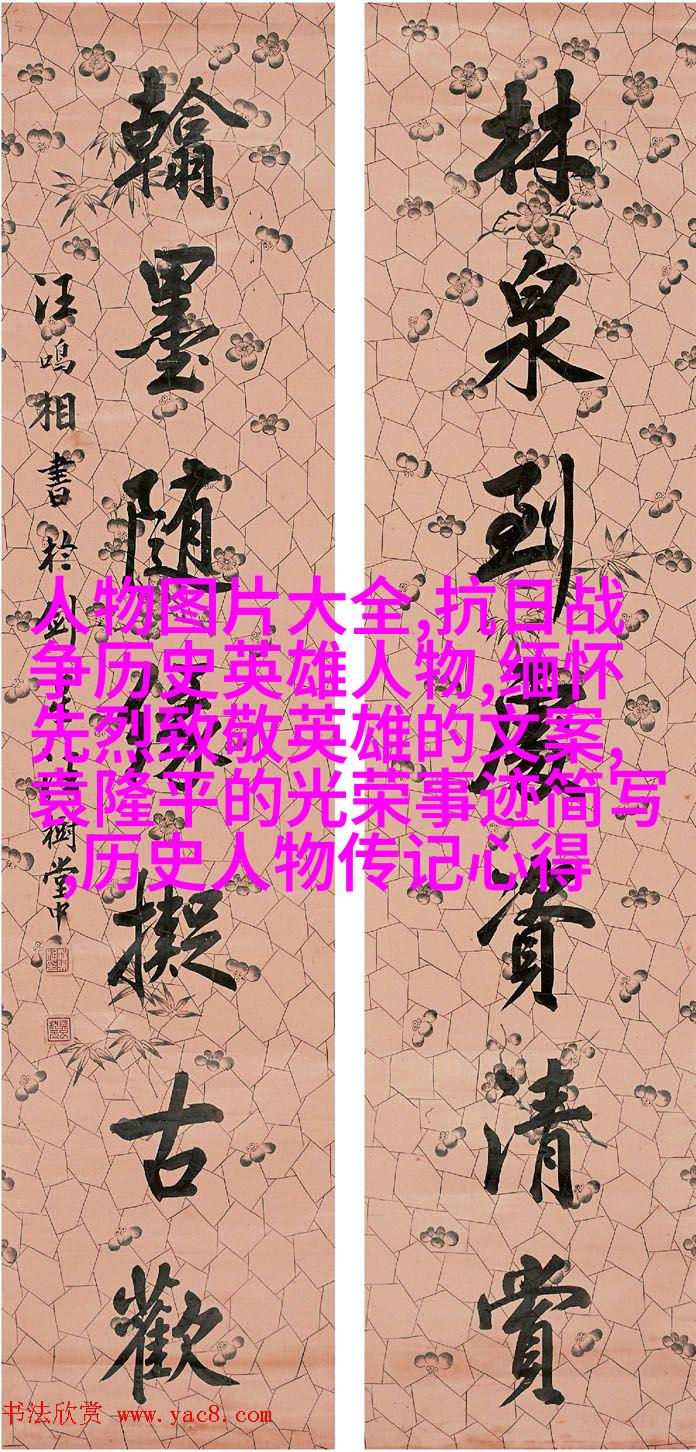 林泉到處資清賞
翰墨随緣擬古歡
汪鳴相書於劍
堂中
人物图片大全,抗日战
争历史英雄人物,缅怀
先烈致敬英雄的文案,
袁隆平的光荣事迹简写
,历史人物传记心得
书法欣赏 www.yac8.com